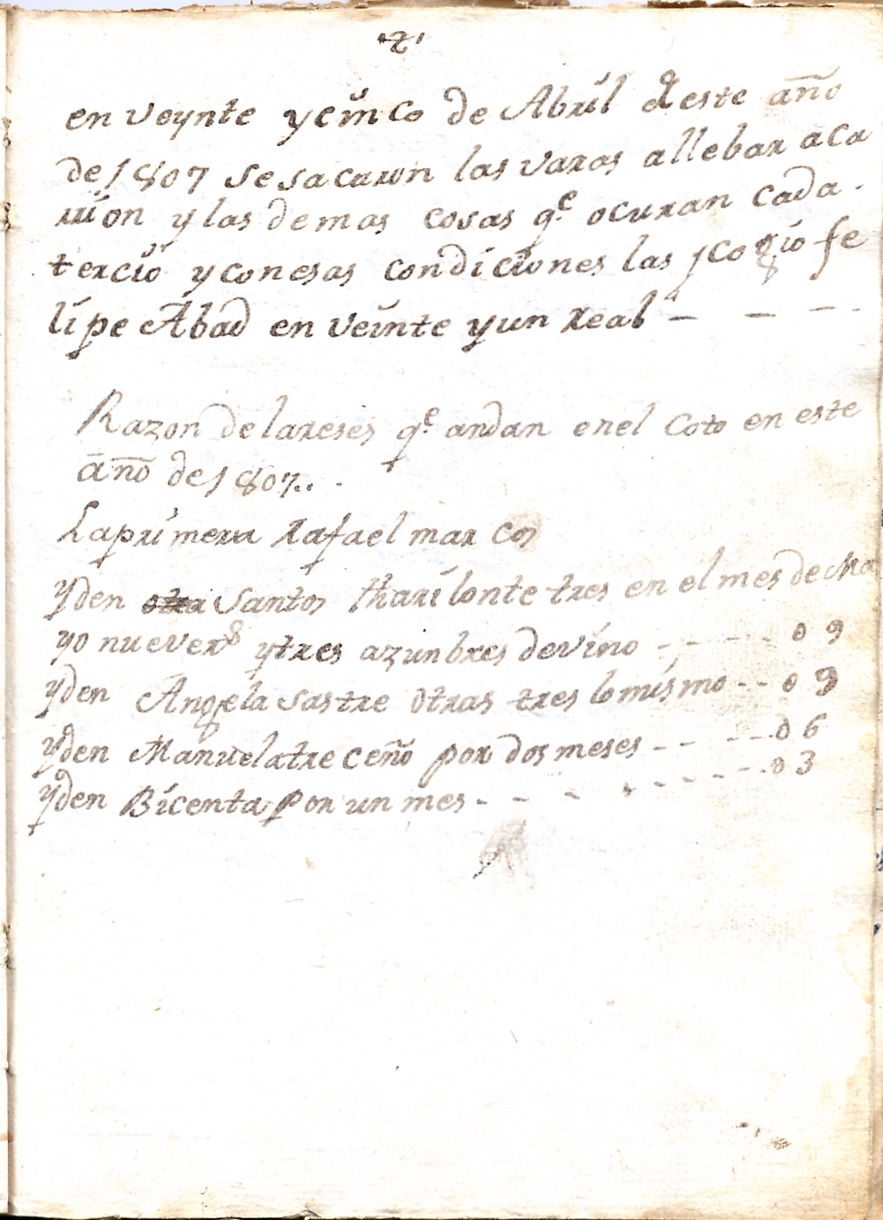 2
en veynte y cinco de Abril de este año
de 1807 se sacaron las varas a llebar a ca
rrion y las demas cosas qe ocurran cada
tercio y con esas condiciones las jcogio fe
lipe Abad en veinte y un Real - - -
Razon de la reses qe andan en el Coto en este
año de 1807..
La primera Rafael marcos
yden Santos tres en el mes de Ma
yo nueve rs y tres azunbres de vino - - - - 09
yden Angela Sastre otras tres lo mismo - - 09
yden Manuela treceño por dos meses - - - - 06
yden Bicenta por un mes - - - - - - - 03